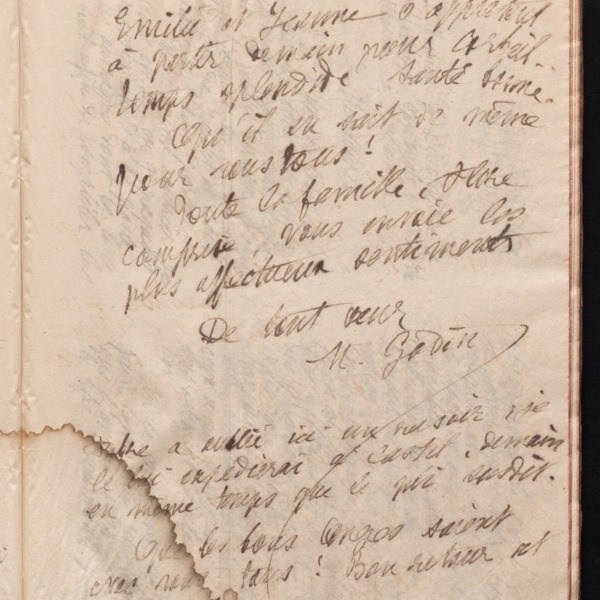 Emilie et Jeanne s'apprêtent
à partir demain pour Corbeil.
temps splendide santé bonne.
Qu'il en soit de même
pour vous tous !
Toute la famille, Flore
comprise, vous envoie les
plus affectueux sentiments
De tout cœur
M. Godin
a oublié ici un rasoir je
le lui expédierai demain
en même temps que ce qui susdit.
Que les bons anges soient
avec vous tous ! Bon retour, et